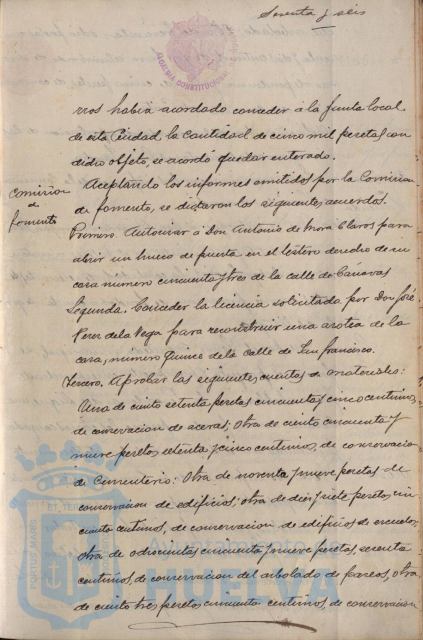 Sesenta y seis
ALCALDIA CONSTITUCIONAL
rros habia acordado conceder á la Junta local
de esta Ciudad la cantidad de cinco mil pesetas con
dicho objeto, se acordó quedar enterado.
Comision de fomento
Aceptando los informes emitidos por la Comision
de fomento, se dictaron los siguientes acuerdos.
Primero. Autorizar á Don Antonio de Mora Claros para
abrir un hueco de puerta en el testero derecho de su
casa numero cincuenta y tres de la calle de Cánovas
Segundo. Conceder la licencia solicitada por Don José
Perez de la Vega para reconstruir una azotea de la
casa, número quince de la calle de San Francisco.
Tercero. Aprobar las siguientes cuentas de materiales:
Una de ciento setenta pesetas cincuenta y cinco centimos,
de conservacion de aceras; otra de ciento cincuenta y
nueve pesetas setenta y cinco centimos, de conservacion
de Cementerio: Otra de noventa y nueve pesetas de
conservacion de edificios; otra de diez y siete pesetas cin
cuenta centimos, de conservacion de edificios de escuelas,
otra de ochocientas cincuenta y nueve pesetas, sesenta
centimos, de conservacion del arbolado de paseos, otra
de ciento tres pesetas cincuenta centimos, de conservacion
PORTUS MARIS
ET TERRAE
Ayuntamiento de
HUELVA